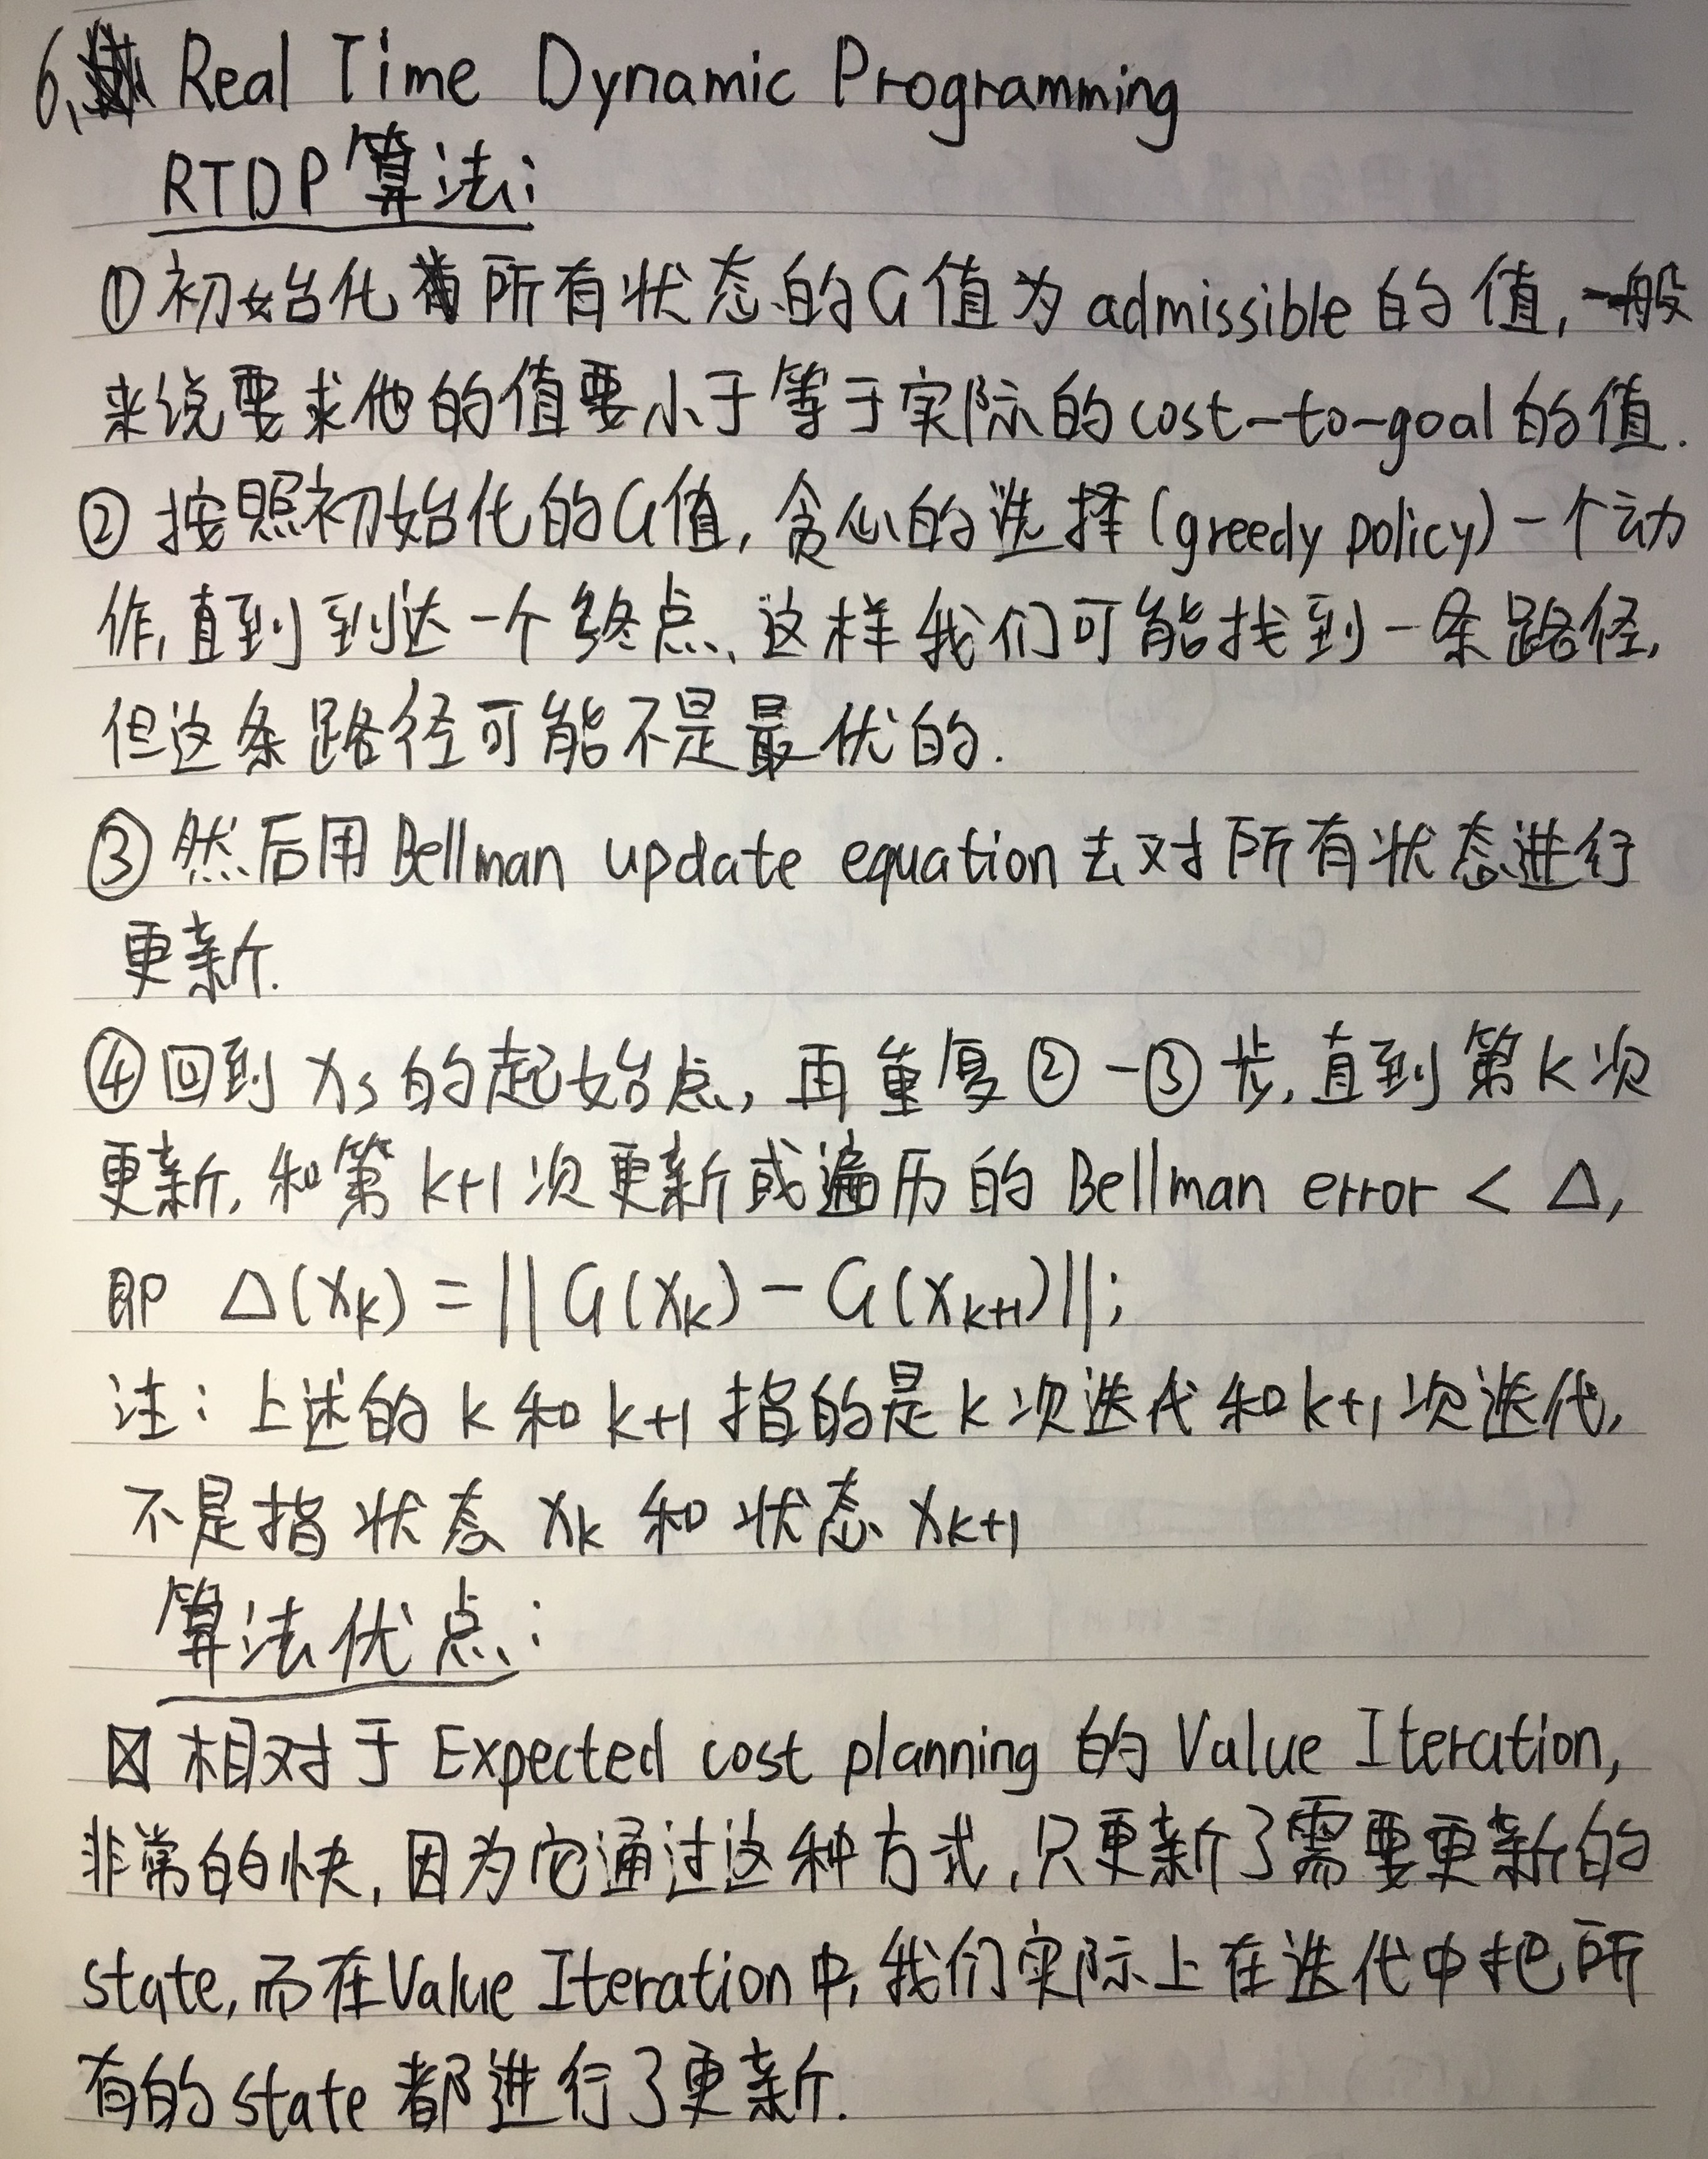 6. Real Time Dynamic Programming
RTDP算法:
①初始化所有状态的G值为admissible的值,一般
来说要求他的值要小于等于实际的cost-to-goal的值.
②按照初始化的G值,贪心的选择(greedy policy)一个动
作,直到到达一个终点、这样我们可能找到一条路径,
但这条路径可能不是最优的.
③然后用Bellman update equation去对所有状态进行
更新.
④回到Xs的起始点,再重复②-③步,直到第k次
更新,和第k+1次更新或遍历的Bellman error < Δ,
即 Δ(Xk) = ||G(Xk) - G(Xk+1)||;
注:上述的k和k+1指的是k次迭代和k+1次迭代,
不是指状态Xk和状态Xk+1
算法优点:
相对于Expected cost planning的Value Iteration,
非常的快,因为它通过这种方式,只更新了需要更新的
state,而在Value Iteration中,我们实际上在迭代中把所
有的state都进行了更新.